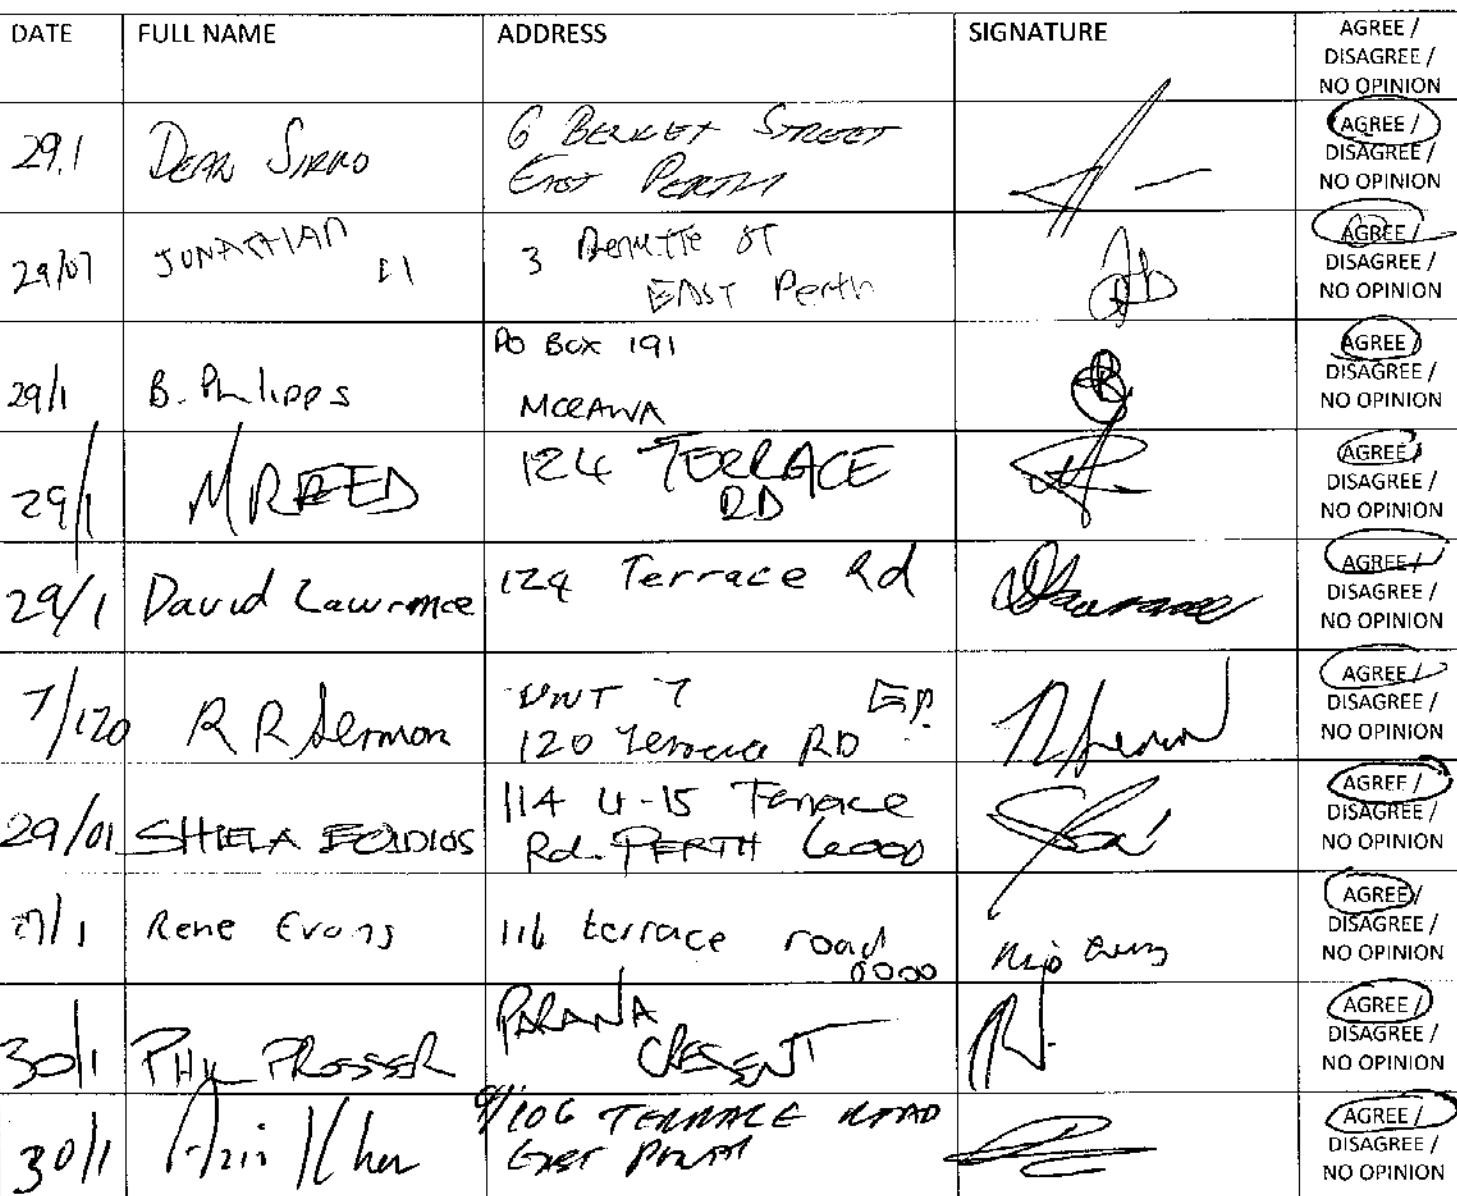 DATE FULL NAME ADDRESS SIGNATURE AGREE /
DISAGREE /
NO OPINION
29.1 DEAN SIRRO 6 STREET
EAST PERTH
AGREE /
DISAGREE /
NO OPINION
29/01 JONATHAN 3 ST
EAST Perth
AGREE /
DISAGREE /
NO OPINION
29/1 B. Phillipps PO Box 191
MORAWA
AGREE /
DISAGREE /
NO OPINION
29/1 M REED 124 TERRACE
RD
AGREE /
DISAGREE /
NO OPINION
29/1 David Lawrence 124 Terrace Rd
AGREE /
DISAGREE /
NO OPINION
R R UNIT 7 E.P.
120 Terrace RD
AGREE /
DISAGREE /
NO OPINION
29/01 SHIELA 114 U-15 Terrace
Rd. PERTH 6000
AGREE /
DISAGREE /
NO OPINION
Rene Evans 116 terrace road
6000
AGREE /
DISAGREE /
NO OPINION
30/1 PHIL PROSSER PARANA
CRESENT
AGREE /
DISAGREE /
NO OPINION
30/1 Khor 9/106 TERRACE ROAD
EAST PERTH
AGREE /
DISAGREE /
NO OPINION